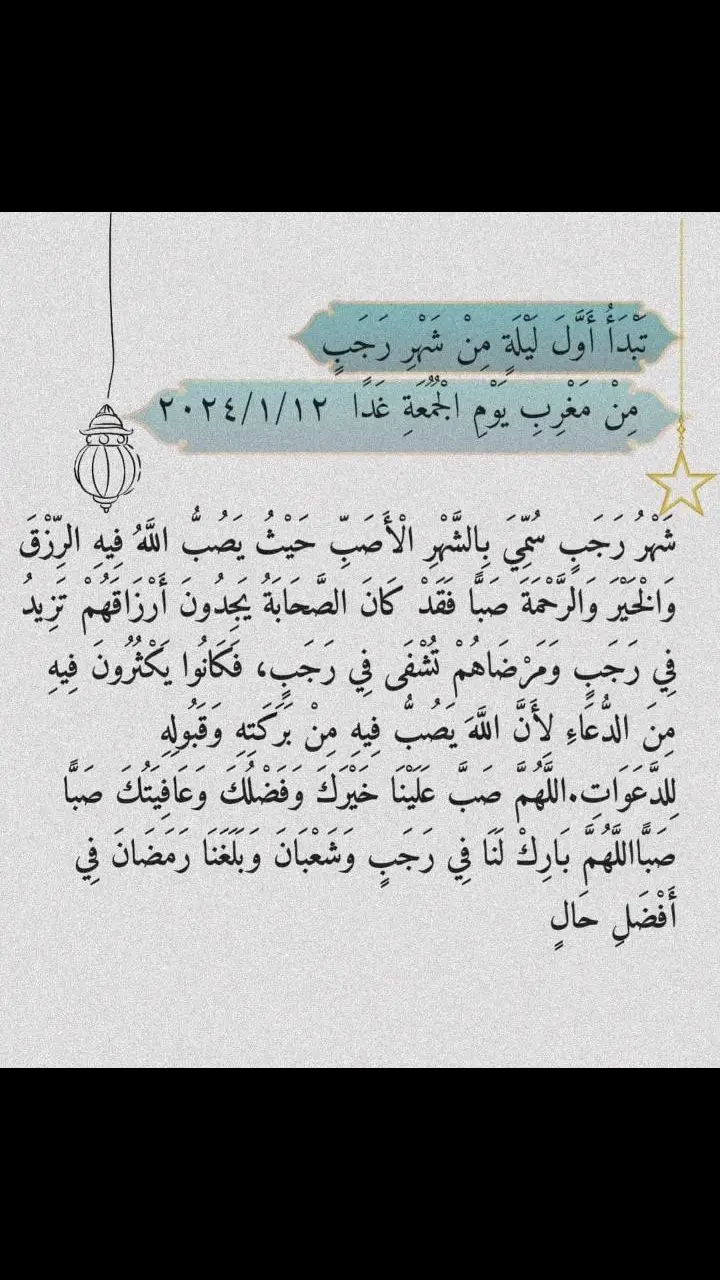 تَبْدَأُ أَوَّلَ لَيْلَةٍ مِنْ شَهْرِ رَجَبٍ
مِنْ مَغْرِبِ يَوْمِ الْجُمُعَةِ غَدًا ٢٠٢٤/١/١٢
شَهْرُ رَجَبٍ سُمِّيَ بِالشَّهْرِ الْأَصَبِّ حَيْثُ يَصُبُّ اللَّهُ فِيهِ الرِّزْقَ
وَالْخَيْرَ وَالرَّحْمَةَ صَبًّا فَقَدْ كَانَ الصَّحَابَةُ يَجِدُونَ أَرْزَاقَهُمْ تَزِيدُ
فِي رَجَبٍ وَمَرْضَاهُمْ تُشْفَى فِي رَجَبٍ، فَكَانُوا يَكْثُرُونَ فِيهِ
مِنَ الدُّعَاءِ لِأَنَّ اللَّهَ يَصُبُّ فِيهِ مِنْ بَرَكَتِهِ وَقَبُولِهِ
لِلدَّعَوَاتِ.اللَّهُمَّ صَبَّ عَلَيْنَا خَيْرَكَ وَفَضْلُكَ وَعَافِيَتُكَ صَبًّا
صَبًّااللَّهُمَّ بَارِكْ لَنَا فِي رَجَبٍ وَشَعْبَانَ وَبَلَغَنَا رَمَضَانَ فِي
أَفْضَلِ حَالٍ